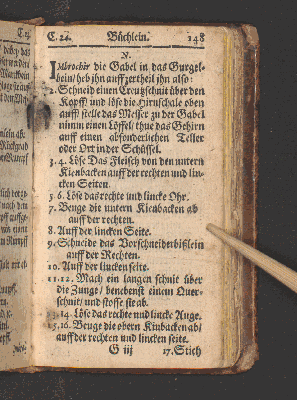 C. 24. Büchlein. 148
N.
IMbrochir die Gabel in das Gurgel-
bein/ heb ihn auff zertheil ihn also:
2. Schneid einen Creutzschnit über den
Kopff und löse die Hirnschale oben
auff/ stelle das Messer zu der Gabel
nimm einen Löffel/ thue das Gehirn
auff einen absonderlichen Teller
oder Ort in der Schüssel.
3. 4. Löse Das Fleisch von den untern
Kienbacken auff der rechten und lin-
cken Seiten.
5 6. Löse das rechte und lincke Ohr.
7. Beuge die untern Kienbacken ab
auff der rechten.
8. Auff der lincken Seite.
9. Schneide das Vorschneiderbißlein
auff der Rechten.
10. Auff der lincken seite.
11. 12. Mach ein langen schnit über
die Zunge/ benebenst einem Quer-
schnit/ und stosse sie ab.
13. 14. Löse das rechte und lincke Auge.
15. 16. Beuge die obern Kinbacken ab/
auff der rechten und lincken seite.
G iij 17. Stich